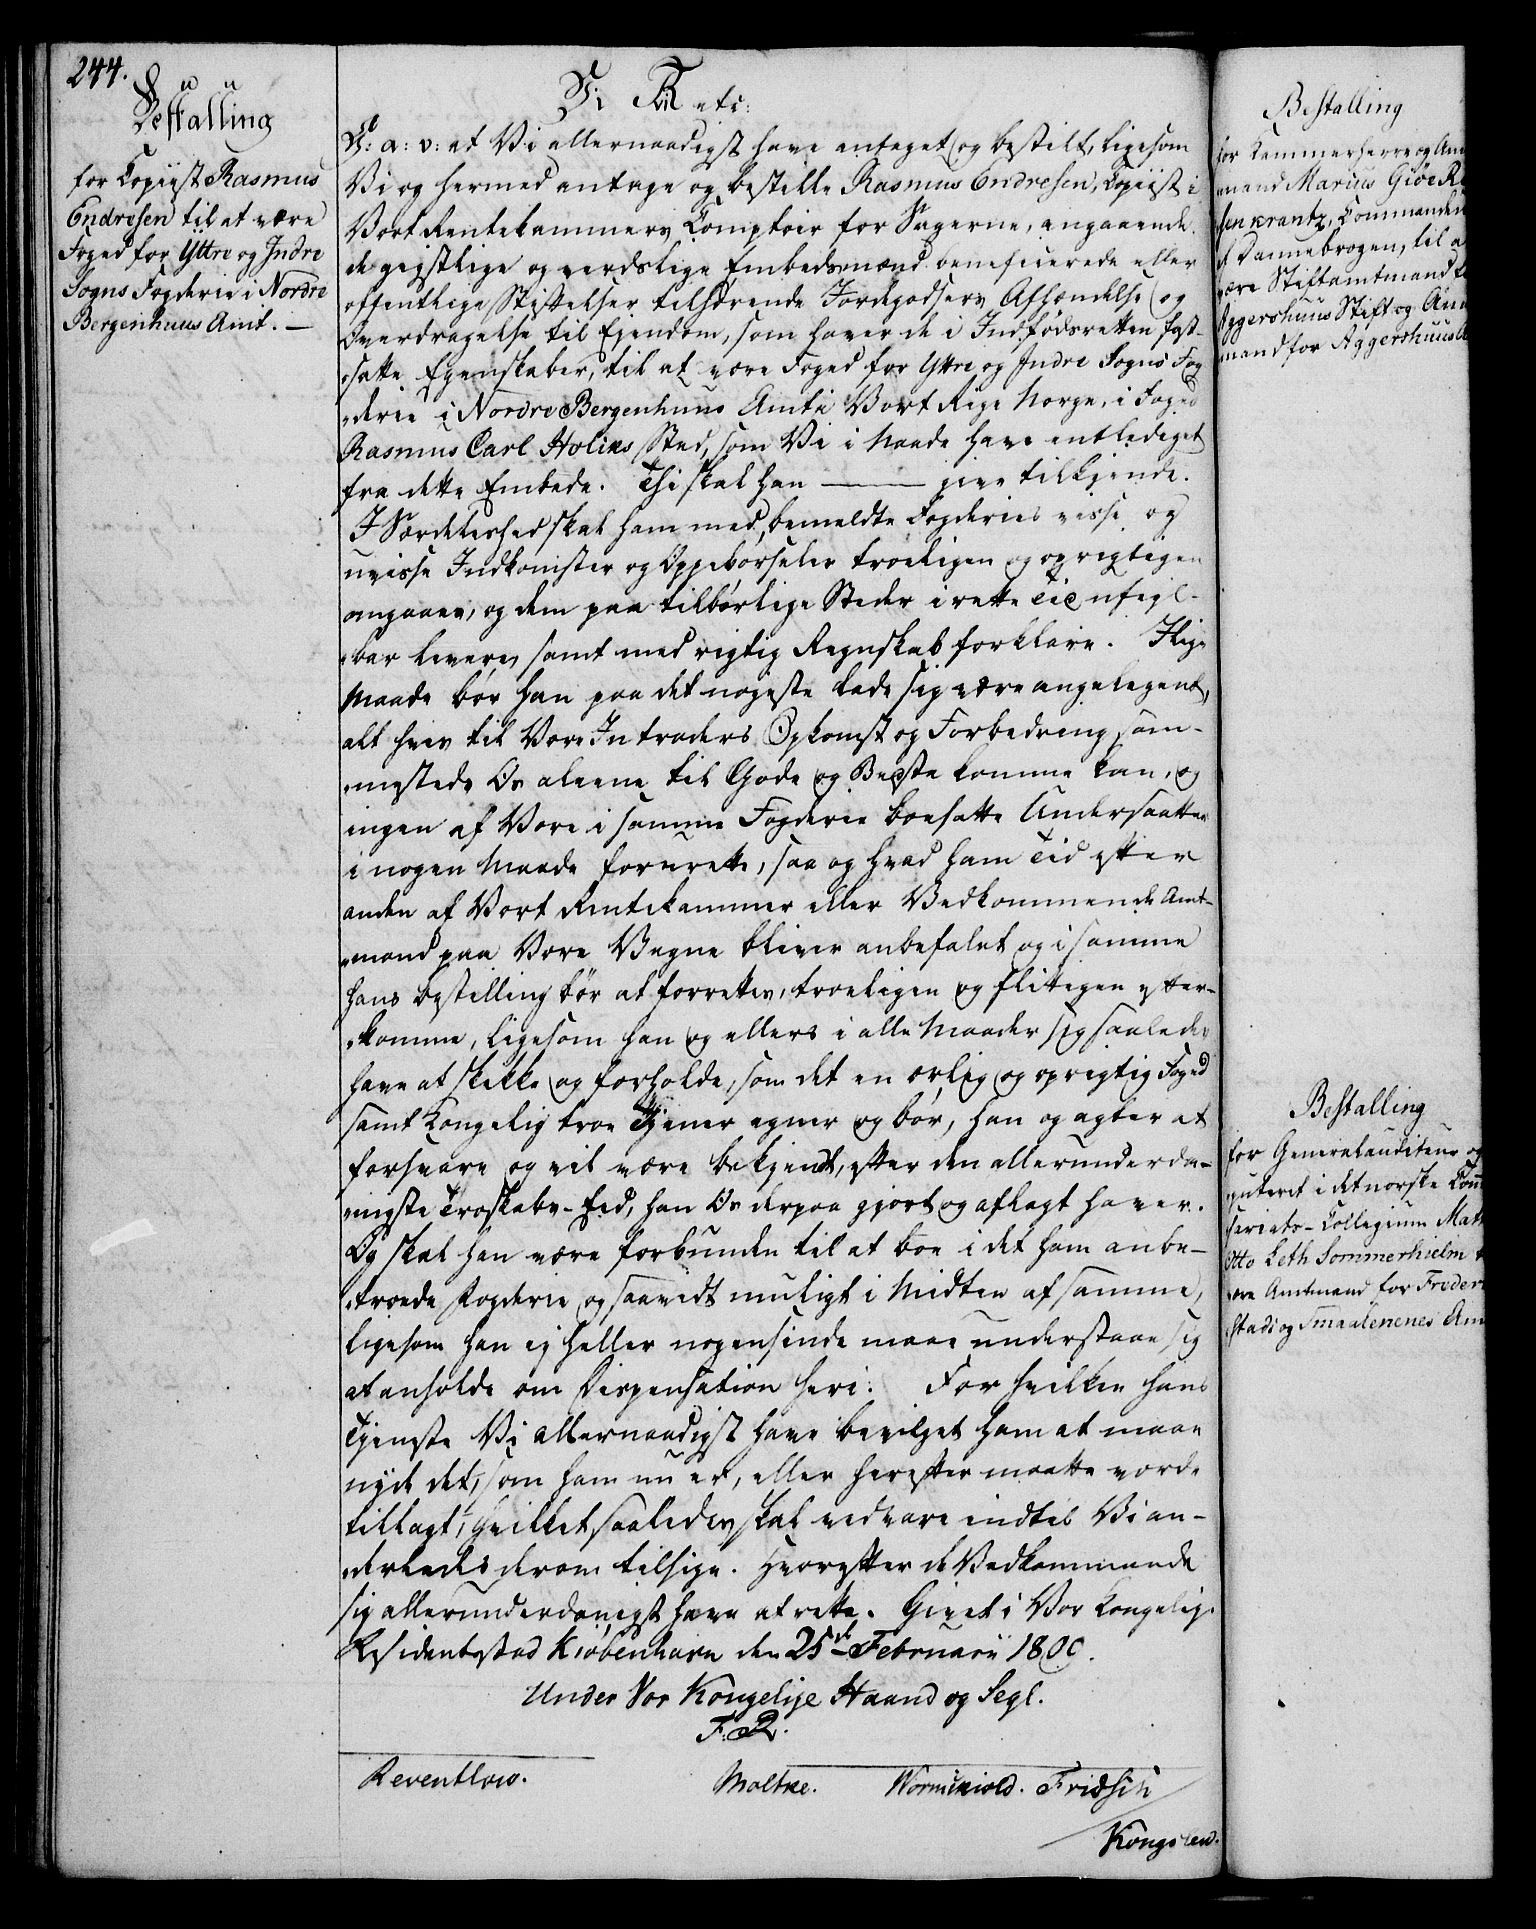 244.
Bestalling
for Copiist Rasmus
Endresen til at være
Foged for Yttre og Indre
Sogns Fogderie i Nordre
Bergenhuus Amt. —
V: a: v: at Vi allernaadigst have antaget og bestilt, ligesom
Vi og hermed antage og bestille Rasmus Endresen, Copiist i
Vort Rentekammers Comptoir for Sagerne, angaaende
de geistlige og verdslige Embedsmænd beneficerede eller
offentlige Stiftelser tilhørende Jordegodsers Afhændelse og
Overdragelse til Ejendom, som haver de i Indfødsretten fast-
satte Egenskaber, til at være Foged for Yttre og Indre Sogns Fog
derie i Nordre Bergenhuus Amt i Vort Rige Norge, i Foged
Rasmus Carl Holms Sted, som Vi i Naade have entlediget
fra dette Embede. Thi skal han ——— give tilkjende.
I Særdeleshed skal ham med bemeldte Fogderies visse og
uvisse Indkomster og Oppebørseler troeligen og oprigtigen
omgaaes, og dem paa tilbørlige Steder i rette Tid ufejl-
bar levere, samt med rigtig Regnskab forklare. I lige
Maade bør han paa det nøjeste lade sig være angelegent,
alt hvis til Vore Intraders Opkomst og Forbedring sam-
mesteds Os alene til Gode og Beste komme kan, og
ingen af Vore i samme Fogderie boesatte Undersaatter
i nogen Maade forurette, saa og hvad ham Tid efter
anden af Vort Rentekammer eller Vedkommende Amt-
mand paa Vore Vegne bliver anbefalet og i samme
hans bestilling bør at forrettes, troeligen og flittigen efter-
komme, ligesom han og ellers i alle Maader sig saaledes
have at skikke og forholde, som det en ærlig og oprigtig Foged
samt Kongelig troe Tjener egner og bør, han og agter at
forsvare og vil være bekjendt, efter den allerunderda-
nigste Troskabs-Eed, han Os derpaa gjort og aflagt haver.
Og skal han være forbunden til at boe i det ham anbe-
troede Fogderie og saavidt muligt i Midten af samme,
ligesom han ej heller nogensinde maae understaae sig
at anholde om Dispensation heri. For hvilken hans
Tjeneste Vi allernaadigst have bevilget ham at maae
nyde det, som ham nu er, eller herefter maatte vorde
tillagt, hvilket saaledes skal vedvare indtil Vi an-
derledes derom tilsige. Hvorefter de Vedkommende
sig allerunderdanigst have at rette. Givet i Vor Kongelige
Residentsstad Kiøbenhavn den 25de Februarii 1800.
Under Vor Kongelige Haand og Segl.
F. R.
Reventlow.
Moltke. Wormskiold. Fridsch
Bestalling
for Kammerherre og Am
mand Marcus Giøe Ro
sen krantz, Commandeur
af Dannebrogen, til a
være Stiftamtmand
Aggershuus Stift og Am
mand for Aggershuus
Bestalling
for Generalauditeur og
puteret i det norske Com
sariats-Collegium Mat
Otto Leth Sommerhielm
være Amtmand for Freder
stads og Smaalenenes Am